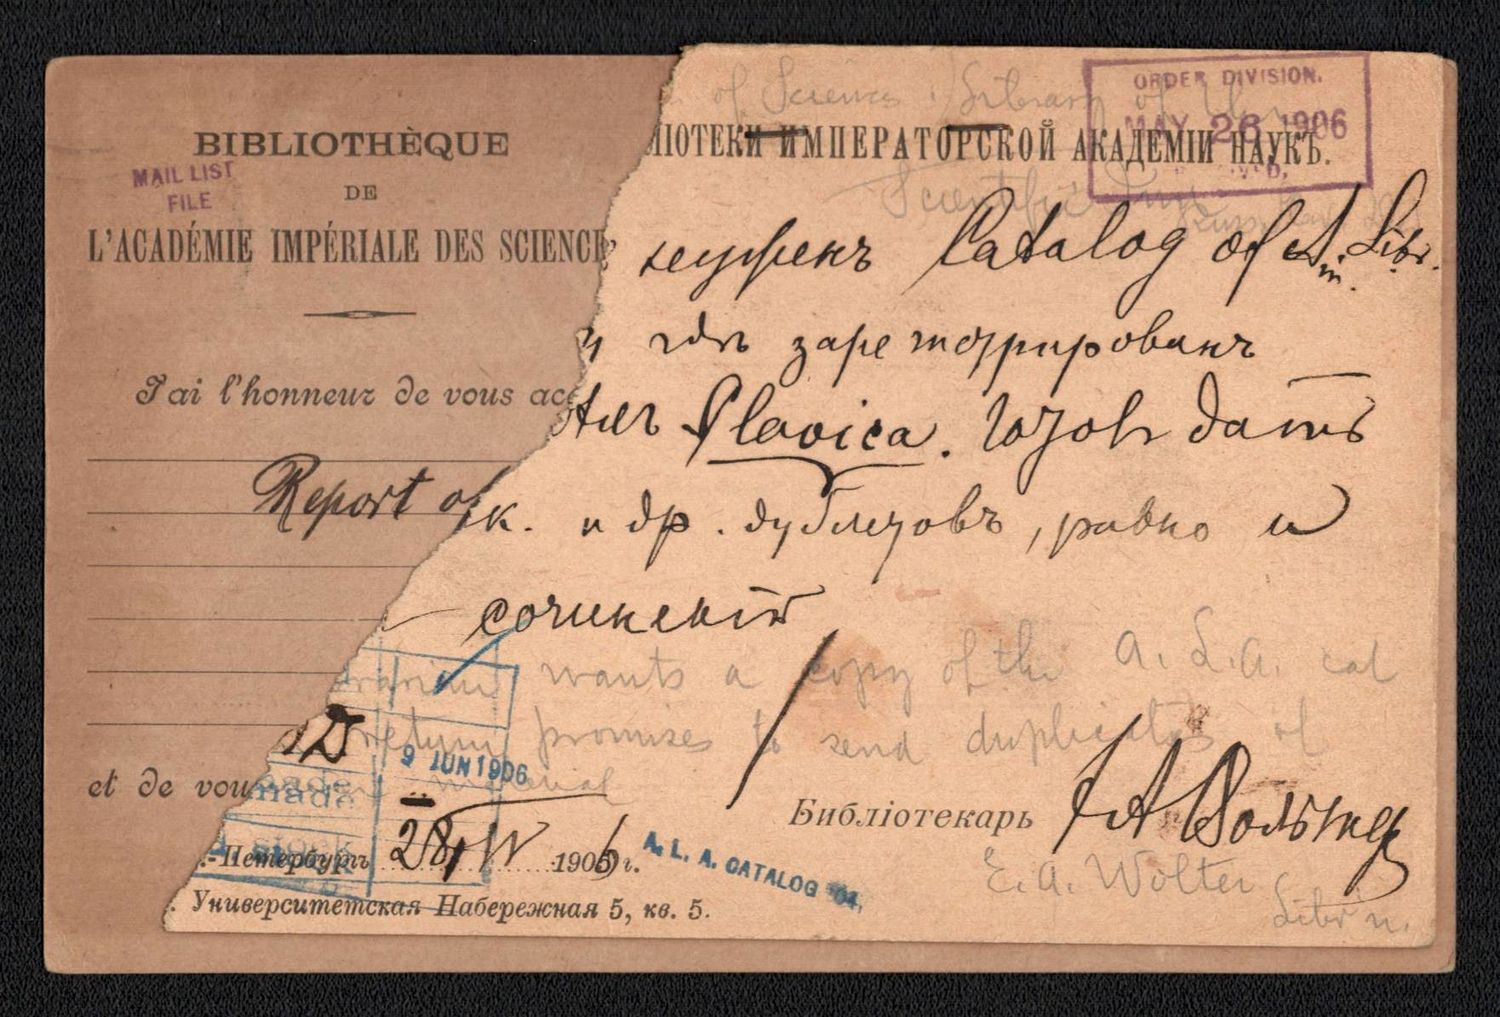 BIBLIOTHÈQUE
DE
L'ACADÉMIE IMPÉRIALE DES SCIENCE
MAIL LIST
FILE
J'ai l'honneur de vous acc
Report of
et de vou
of Sciences Library of
ORDER DIVISION.
MAY 26 1906
ІОТЕКИ ИМПЕРАТОРСКОЙ АКАДЕМІИ НАУКЪ.
Scientific
нуженъ Catalog of Am. Libr.
гдѣ зарегистрированъ
Slavica. Готовъ дать
к. и др. дублетовъ, равно и
сочиненій
wants a copy of the A. L. A. cat
return promises to send duplicates of
material
9 JUN 1906
made
stock
Библіотекарь
Э А Вольтеръ
E. A. Wolter
Libr'n.
.-Петербургъ 28/IV 1906 г.
A. L. A. CATALOG '04.
Университетская Набережная 5, кв. 5.